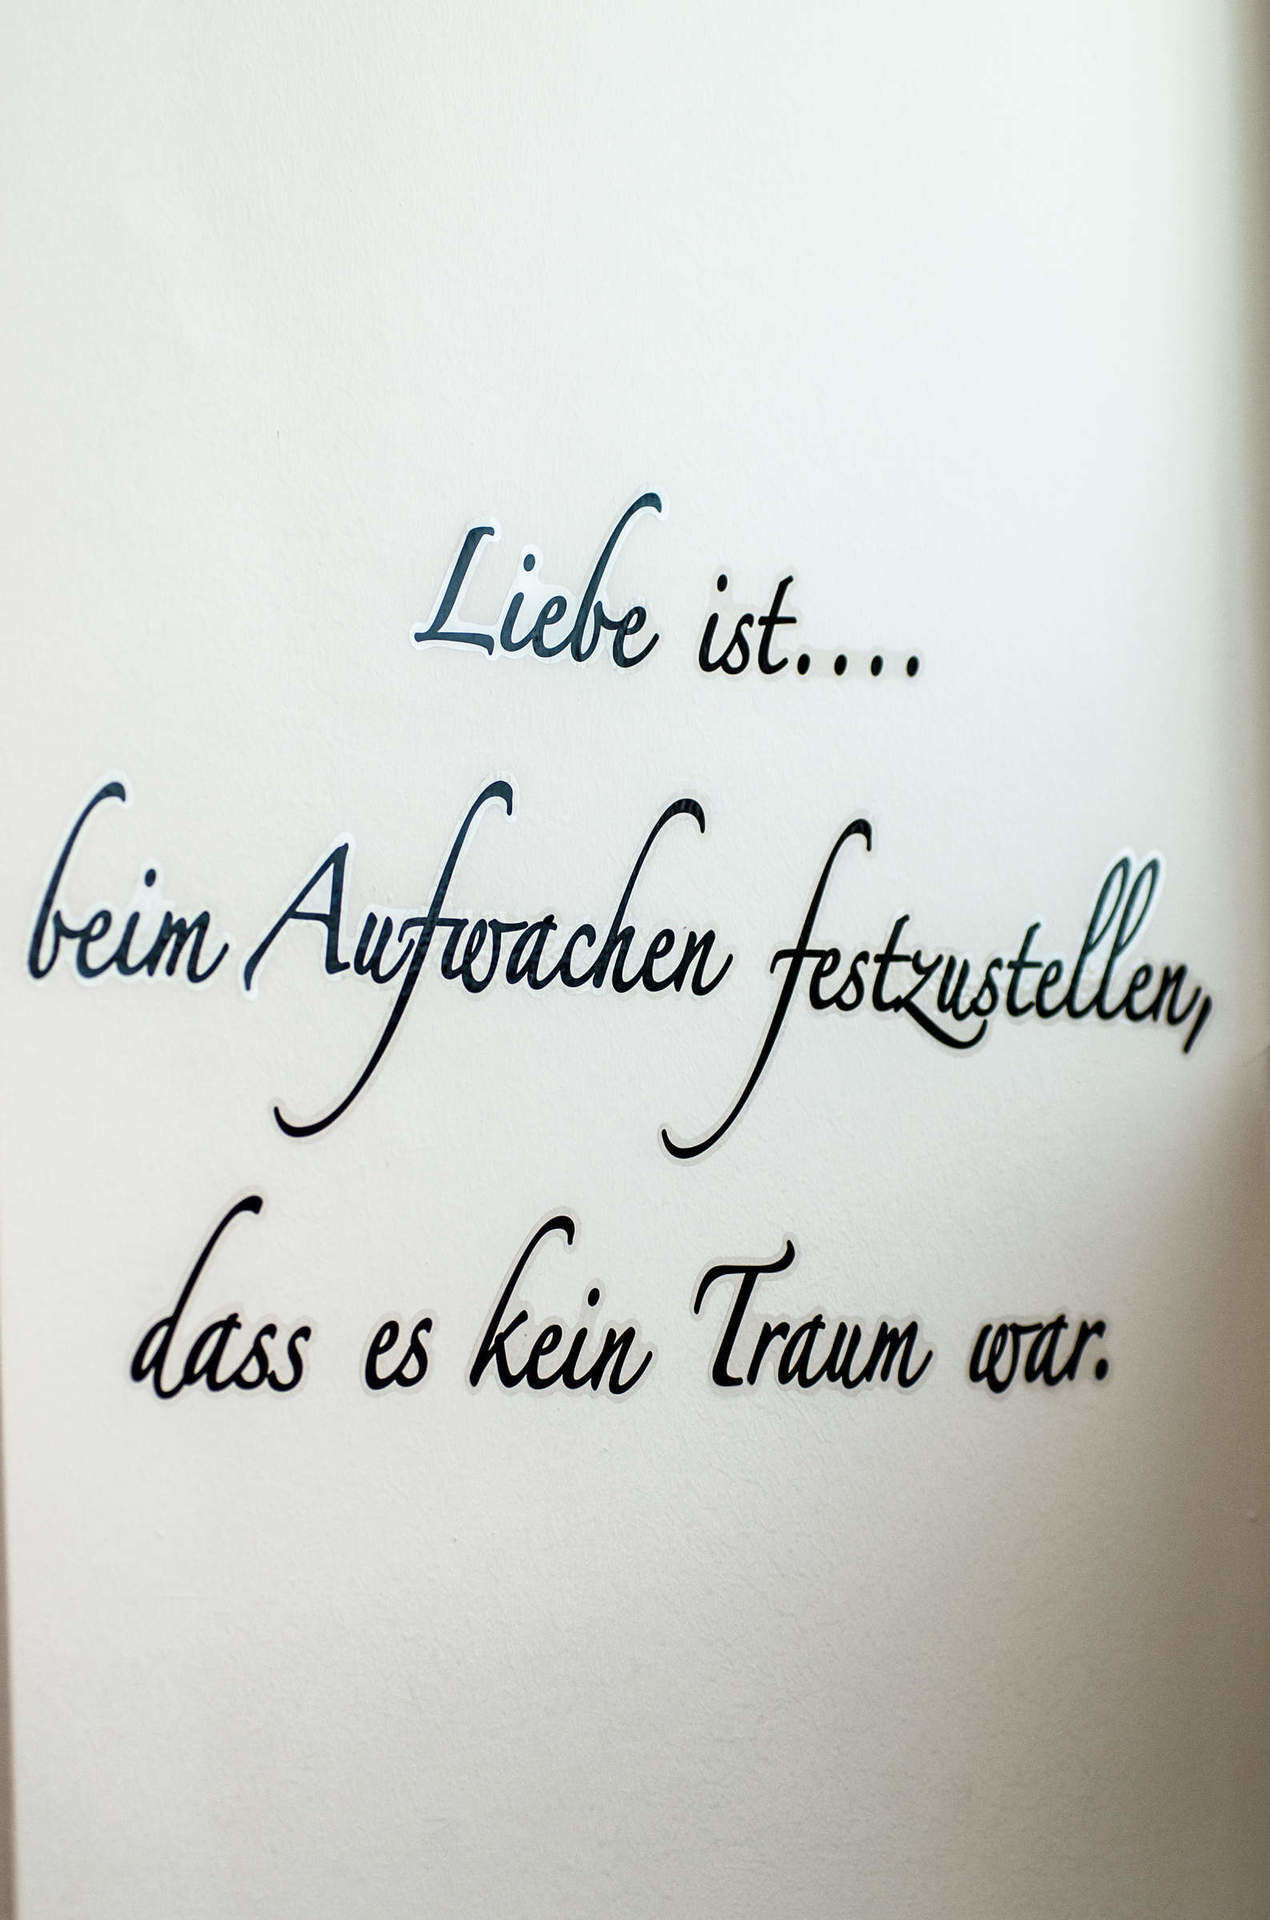 Liebe ist....
beim Aufwachen festzustellen,
dass es kein Traum war.